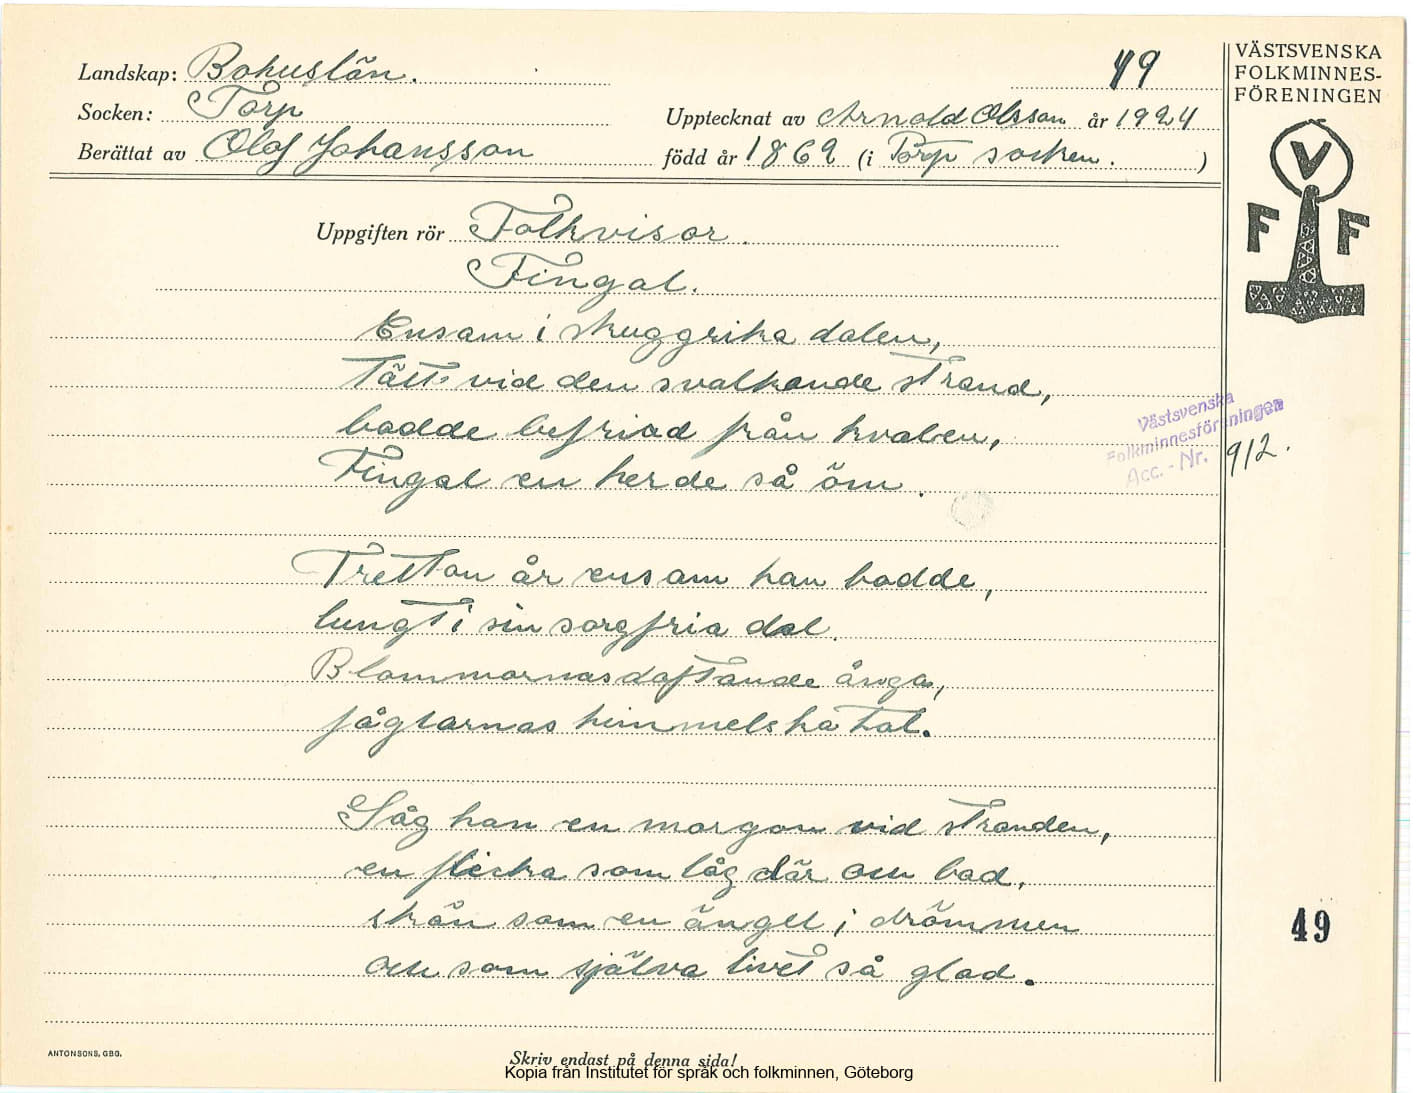 Landskap: Bohuslän.
49
VÄSTSVENSKA
FOLKMINNES-
FÖRENINGEN
Socken: Torp
Upptecknat av Arnold Olsson år 1924
Berättat av Olof Johansson född år 1862 (i Torp socken.)
V
F F
Uppgiften rör Folkvisor.
Fingal.
Ensam i skuggrika dalen,
tätt vid den svalkande strand,
bodde befriad från kvalen,
Fingal en herde så öm.
Västsvenska
Folkminnesföreningen
Acc.-Nr. 912.
Tretton år ensam han bodde,
lungt i sin sorgfria dal.
Blommornas doftande ånga,
fåglarnas himmelska tal.
Såg han en morgon vid stranden,
en flicka som låg där och bad.
skön som en ängel i drömmen
och som själva livet så glad.
49
ANTONSONS, GBG.
Skriv endast på denna sida!
Kopia från Institutet för språk och folkminnen, Göteborg